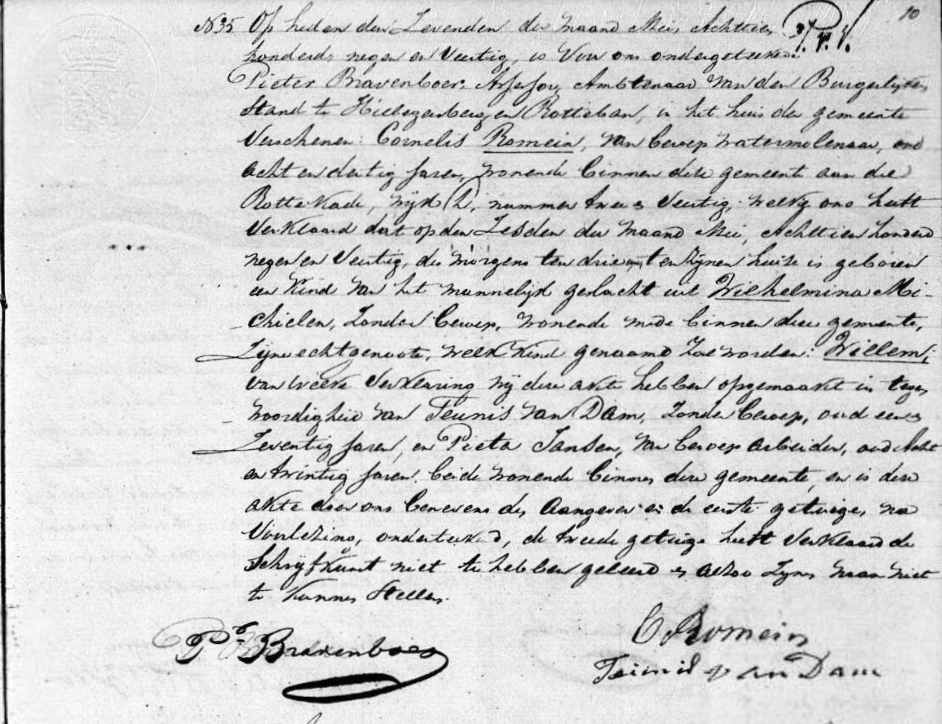 10
N 35 Op heden den Zevenden der maand Mei, Achttien
honderd negen en Veertig, is Voor ons ondergeteekende
Pieter Bravenboer, Assessor, Ambtenaar van den Burgerlijken
Stand te Hillegersberg en Rotteban, in het huis der gemeente
Verschenen: Cornelis Romein, van beroep watermolenaar, oud
acht en dertig Jaren, wonende binnen deze gemeente aan die
Rotte Kade, wijk D, nummer twee & Veertig, welke ons heeft
Verklaard dat op den Zesden der maand Mei, Achttien honderd
negen en Veertig, des morgens ten drie uur in zijnen huize is geboren
een Kind van het mannelijk geslacht uit Wilhelmina Mi-
-chielen, Zonder beroep, wonende mede binnen deze gemeente,
Zijne echtgenoote, welk Kind genaamd zal worden: Willem,
van welke Verklaring wij deze akte hebben opgemaakt in tegen
woordigheid van Teunis van Dam, Zonder beroep, oud een &
Zeventig Jaren, en Pieter Jansen, van beroep arbeider, oud acht
en twintig Jaren, beide wonende binnen deze gemeente, en is deze
akte door ons benevens den aangever en de eerste getuige, na
Voorlezing, onderteekend, de tweede getuige heeft Verklaard de
Schrijfkunst niet te hebben geleerd & alzoo Zijn naam niet
te kunnen Stellen.
P Bravenboer
C Romein
Teunis van Dam